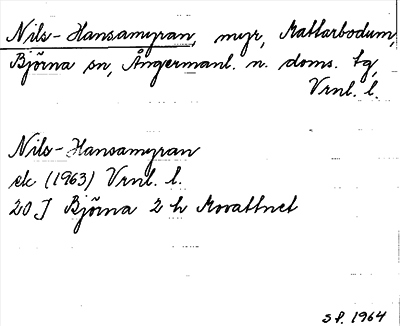 Nils-Hansamyran, myr, Mattarbodum,
Björna sn, Ångermanl. n. doms. tg,
Vrnl. l.
Nils-Hansamyran
ek (1963) Vrnl. l.
20 J Björna 2 h Movattnet
S P. 1964